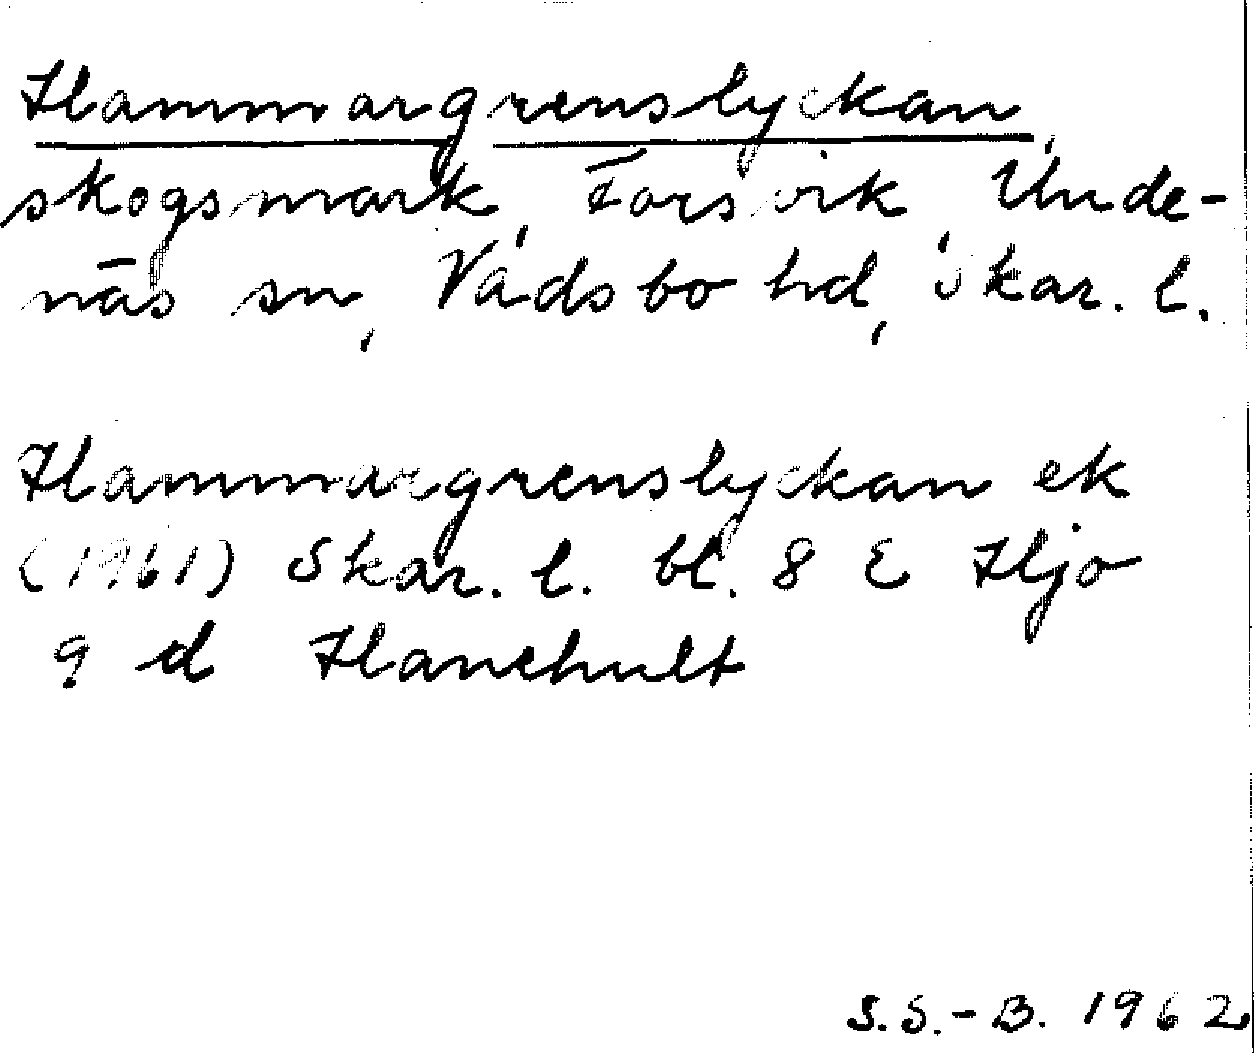 Hammargrenslyckan,
skogsmark, Forsvik, Unde-
näs sn, Vadsbo hd, Skar. l.
Hammargrenslyckan ek
(1961) Skar. l. bl. 8 E Hjo
9 d Hanehult
S.S.-B. 1962